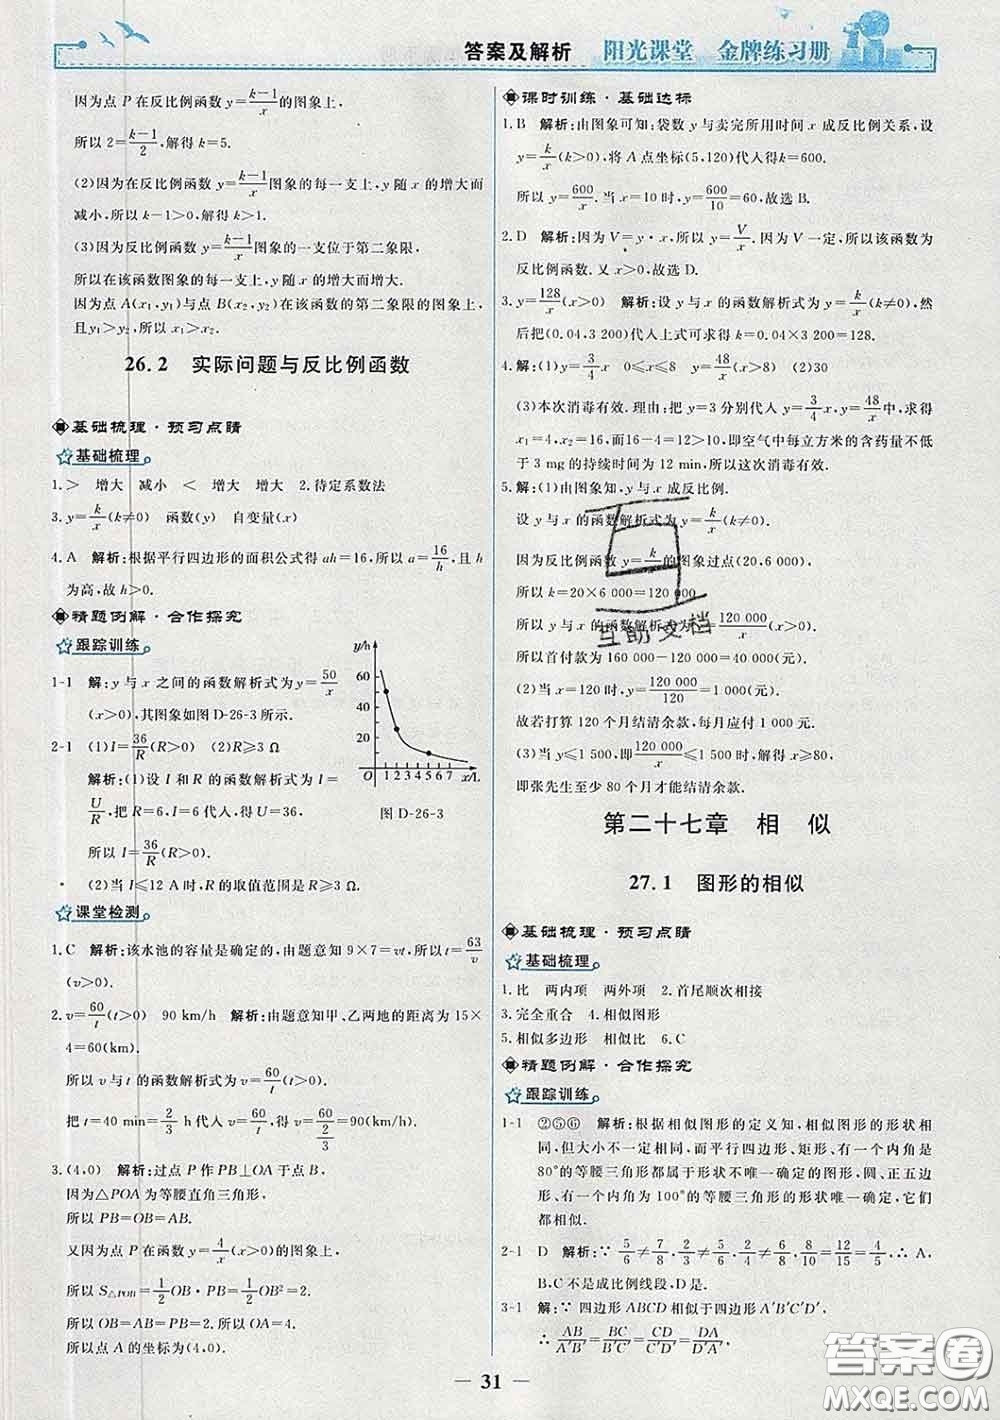 答案及解析 阳光课堂 金牌练习册
因为点 P 在反比例函数 y=(k-1)/x 的图象上,
所以 2=(k-1)/2,解得 k=5.
(2)因为在反比例函数 y=(k-1)/x 图象的每一支上,y 随 x 的增大而
减小,所以 k-1>0,解得 k>1.
(3)因为反比例函数 y=(k-1)/x 图象的一支位于第二象限,
所以在该函数图象的每一支上,y 随 x 的增大而增大.
因为点 A(x₁,y₁)与点 B(x₂,y₂)在该函数的第二象限的图象上,
且 y₁>y₂,所以 x₁>x₂.
26.2 实际问题与反比例函数
基础梳理·预习点睛
基础梳理
1.> 增大 减小 < 增大 增大 2.待定系数法
3.y=k/x(k≠0) 函数(y) 自变量(x)
4.A 解析:根据平行四边形的面积公式得 ah=16,所以 a=16/h,且 h
为高,故 h>0.
精题例解·合作探究
跟踪训练
1-1 解:y 与 x 之间的函数解析式为 y=50/x
(x>0),其图象如图 D-26-3 所示.
2-1 (1)I=36/R(R>0) (2)R≥3 Ω
解析:(1)设 I 和 R 的函数解析式为 I=
U/R,把 R=6,I=6代入,得 U=36,
所以 I=36/R(R>0).
(2)当 I≤12 A 时,R 的取值范围是 R≥3 Ω.
y/h
60
40
20
O 1 2 3 4 5 6 7 8 x/L
图 D-26-3
课堂检测
1.C 解析:该水池的容量是确定的,由题意知 9×7=vt,所以 t=63/v
(v>0).
2.v=60/t(t>0) 90 km/h 解析:由题意知甲、乙两地的距离为 15×
4=60(km).
所以 v 与 t 的函数解析式为 v=60/t(t>0).
把 t=40 min=2/3 h 代入 v=60/t,得 v=60/(2/3)=90.
3.(4,0) 解析:过点 P 作 PB⊥OA 于点 B,
因为△POA 为等腰直角三角形,
所以 PB=OB=AB.
又因为点 P 在函数 y=4/x(x>0)的图象上,
所以 S△POB=1/2 OB·PB=1/2 OB²=2.
所以 OB=AB=PB=2,所以 OA=4.
所以点 A 的坐标为(4,0).
课时训练·基础达标
1.B 解析:由图象可知:袋数 y 与卖完所用时间 x 成反比例关系,设
y=k/x(k>0),将 A 点坐标(5,120)代入得 k=600.
所以 y=600/x.当 x=10 时,y=600/10=60,故选 B.
2.D 解析:因为 V=y·x,所以 y=V/x.因为 V 一定,所以该函数为
反比例函数.又 x>0,故选 D.
3.y=128/x(x>0) 解析:设 y 与 x 的函数解析式为 y=k/x(k≠0),然
后把(0.04,3 200)代入上式可求得 k=0.04×3 200=128.
4.解:(1)y=3/4 x 0≤x≤8 y=48/x(x>8) (2)30
(3)本次消毒有效.理由:把 y=3 分别代入 y=3/4 x,y=48/x,求得
x₁=4,x₂=16,而 16-4=12>10,即空气中每立方米的含药量不低
于 3 mg 的持续时间为 12 min,所以这次消毒有效.
5.解:(1)由图象知,y 与 x 成反比例.
设 y 与 x 的函数解析式为 y=k/x(k≠0).
因为反比例函数 y=k/x 的图象过点(20,6 000),
所以 k=20×6 000=120 000.
所以 y 与 x 的函数解析式为 y=120 000/x(x>0).
所以首付款为 160 000-120 000=40 000(元).
(2)当 x=120 时,y=120 000/120=1 000(元).
故若打算 120 个月结清余款,每月应付 1 000(元).
(3)当 y≤1 500,即 120 000/x≤1 500 时,解得 x≥80,
即张先生至少 80 个月才能结清余款.
第二十七章 相 似
27.1 图形的相似
基础梳理·预习点睛
基础梳理
1.比 两内项 两外项 2.首尾顺次相接
3.完全重合 4.相似图形
5.相似多边形 相似比 6.C
精题例解·合作探究
跟踪训练
1-1 ②⑤⑥ 解析:根据相似图形的定义知,相似图形的形状相
同,但大小不一定相同,而平行四边形、矩形、有一个内角为
80°的等腰三角形都属于形状不唯一确定的图形,圆、正五边
形、有一个内角为 100°的等腰三角形的形状唯一确定,它们
都相似.
2-1 D 解析:∵5/6≠7/8,2/3≠7/8,2/3≠6/8,8/10=12/15=4/5,∴A,
B,C不是成比例线段,D是.
3-1 解:∵四边形 ABCD 相似于四边形 A′B′C′D′,
∴AB/A′B′=BC/B′C′=CD/C′D′=DA/D′A′,
— 31 —
互助文档
答案圈
MXQE.COM